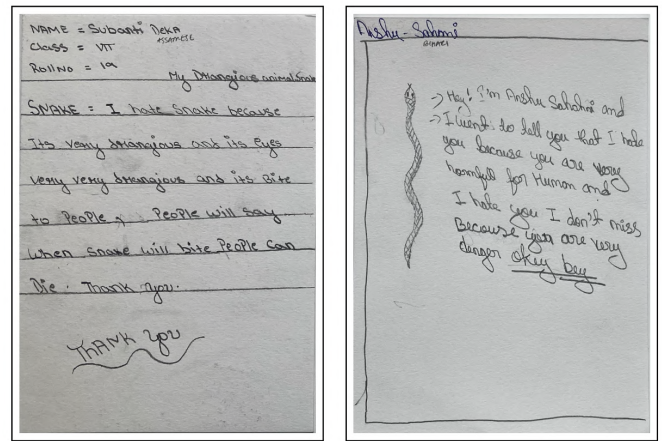 NAME = Subanti DEKA
ASSAMESE
Class = VII
Roll No = 19
My Dhangious animal Snake
SNAKE = I hate Snake because
Its veny dhangious and its Eyes
veny veny dhangious and its Bite
to PeoPle, PeoPle will say
when snake will bite PeoPle Can
Die. Thank you.
THANK you
Anshu - Sahani
-> Hey! I'm Anshu Sahahni and
-> I went to tell you that I hate
you because you are very
harmfull for Human and
I hate you I don't miss
Because you are very
denger okey bey